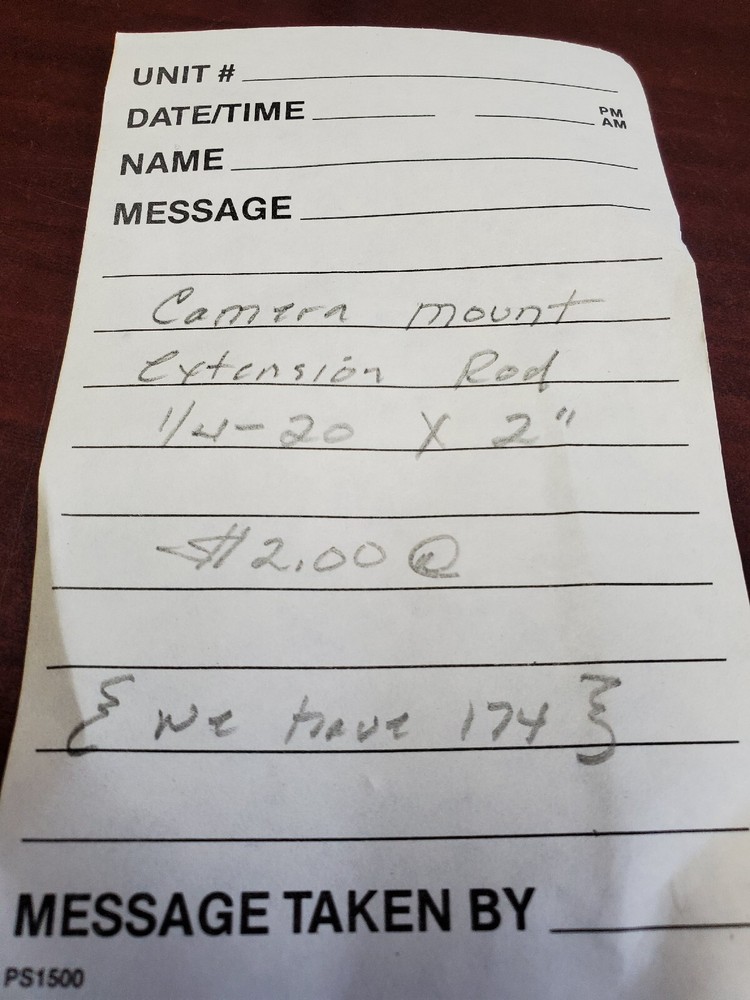 UNIT #
DATE/TIME PM
AM
NAME
MESSAGE
Camera mount
Extension Rod
1/4-20 X 2"
$2.00 @
{ We have 174 }
MESSAGE TAKEN BY
PS1500